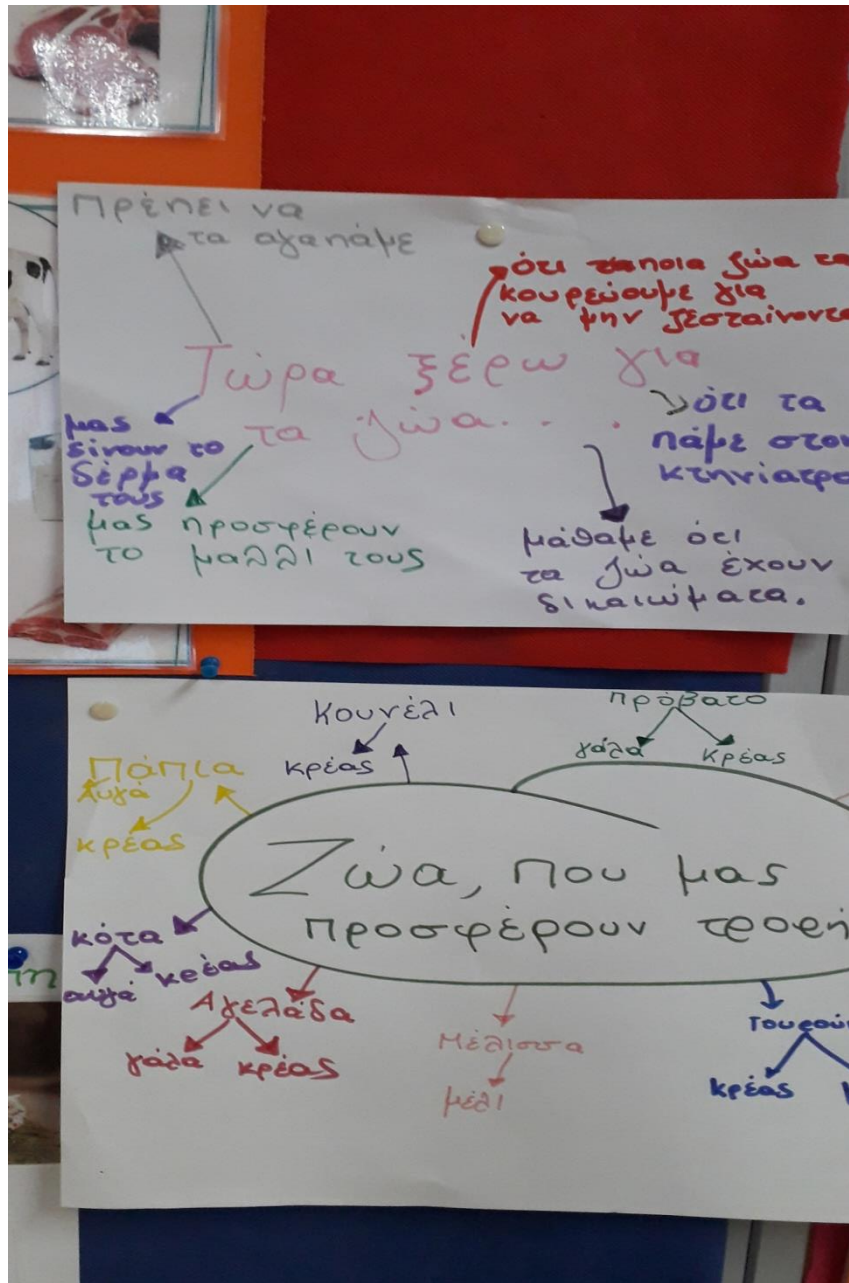 Πρέπει να
τα αγαπάμε
ότι κάποια ζώα τα
κουρεύουμε για
να μην ζεσταίνοντα
Τώρα ξέρω για
τα ζώα. . . .
ότι τα
πάμε στον
κτηνίατρο
μας
δίνουν το
δέρμα
τους
μας προσφέρουν
το μαλλι τους
μάθαμε ότι
τα ζώα έχουν
δικαιώματα.
Κουνέλι
κρέας
πρόβατο
γάλα κρέας
Πάπια
Αυγά
κρέας
Ζώα, που μας
προσφέρουν τροφή
κότα
αυγά κρέας
Αγελάδα
γάλα κρέας
Μέλισσα
μέλι
Γουρούν
κρέας
τη